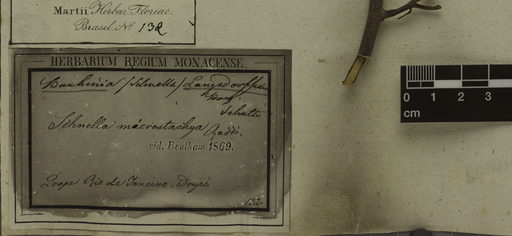 Martii Herbar. Florae
Brasil. No 132
HERBARIUM REGIUM MONACENSE.
Bauhinia (Schnella) Langsdorffiana
Bong
Schult
Schnella macrostachya Raddi.
vid. Bentham 1869.
Prope Rio de Janeiro.
132
0 1 2 3
cm